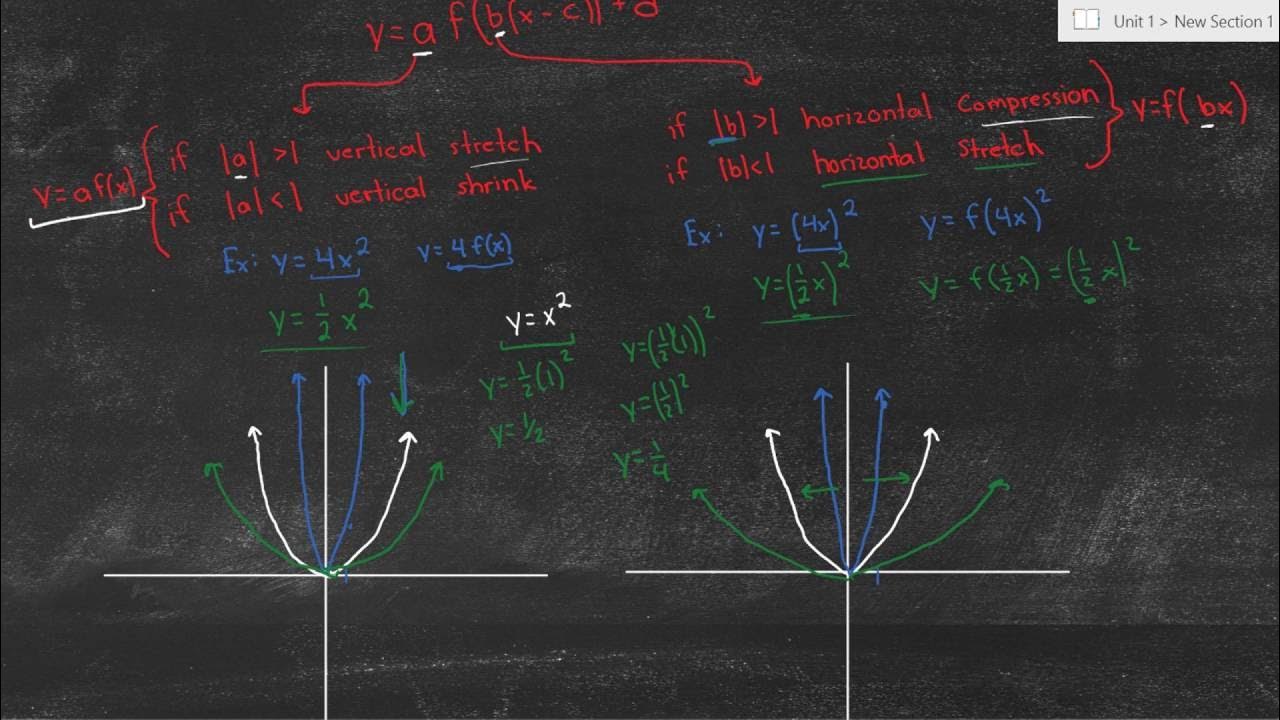 Unit 1 > New Section 1
y = a f(b(x - c)) + d
y = af(x)
if |a| > 1 vertical stretch
if |a| < 1 vertical shrink
if |b| > 1 horizontal Compression
if |b| < 1 horizontal Stretch
y = f(bx)
Ex: y = 4x² y = 4f(x)
y = 1/2 x²
y = x²
y = 1/2(1)²
y = 1/2
Ex: y = (4x)² y = f(4x)²
y = (1/2 x)² y = f(1/2 x) = (1/2 x)²
y = (1/2(1))²
y = (1/2)²
y = 1/4